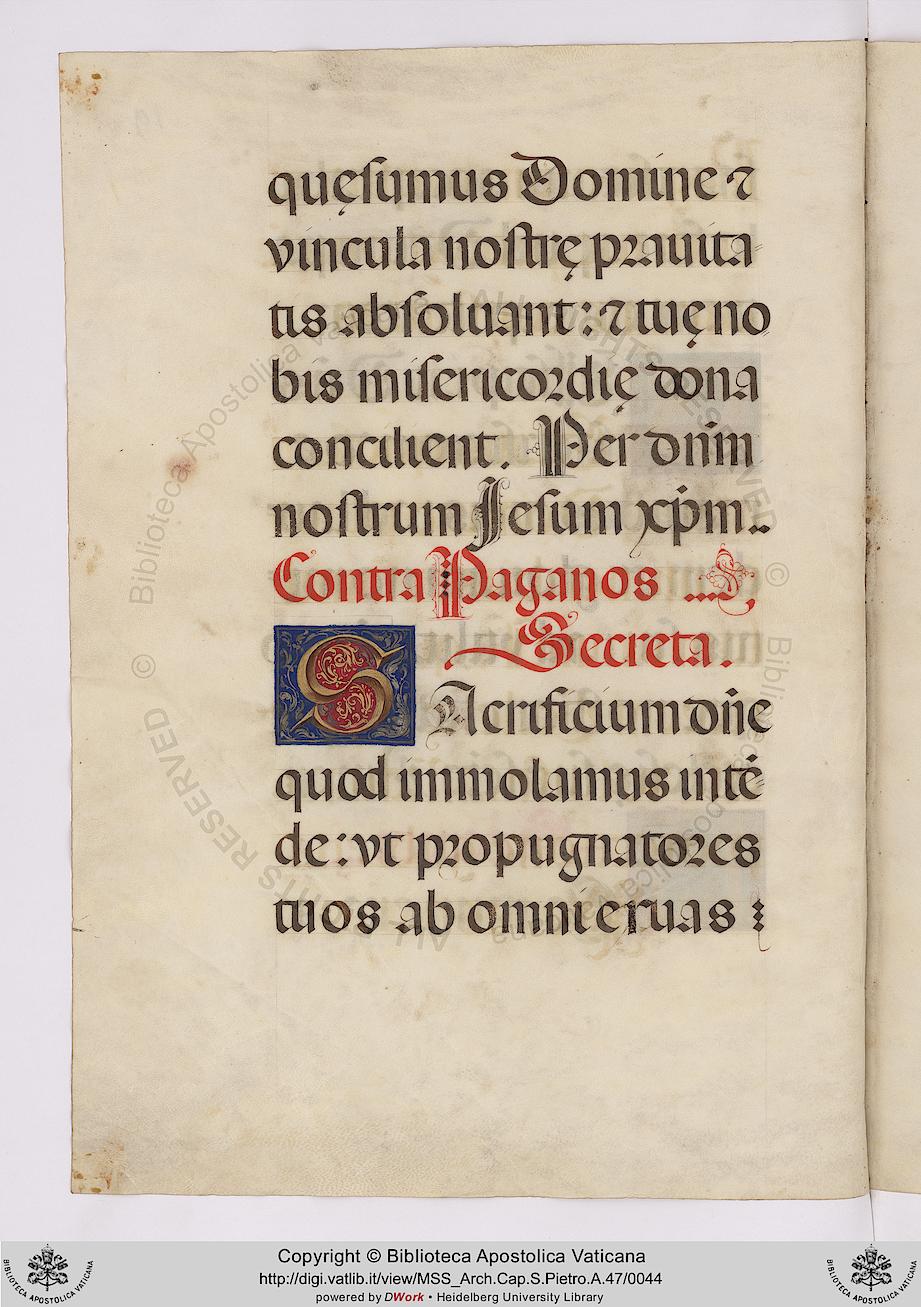 quęſumus Domine ⁊
vincula noſtrę prauita-
tis abſoluant: ⁊ tuę no
bis miſericordię dona
concilient. Per dn̄m
noſtrum Jeſum xp̄m..
Contra Paganos ...
Secreta.
SAcrificium dn̄e
quod immolamus intē-
de: vt propugnatores
tuos ab omni eruas :
© Biblioteca Apostolica Vaticana ALL RIGHTS RESERVED
Copyright © Biblioteca Apostolica Vaticana
http://digi.vatlib.it/view/MSS_Arch.Cap.S.Pietro.A.47/0044
powered by DWork • Heidelberg University Library
BIBLIOTECA APOSTOLICA VATICANA
BIBLIOTECA APOSTOLICA VATICANA